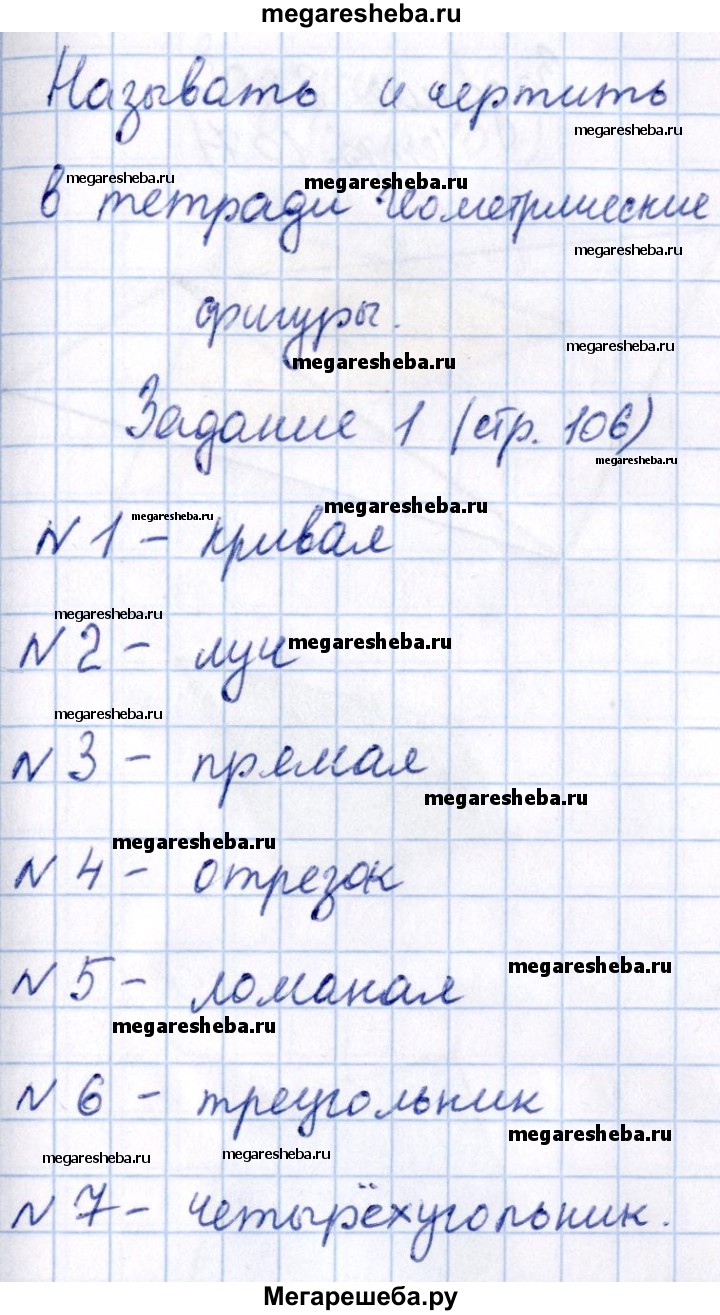 megaresheba.ru
Называть и чертить
megaresheba.ru
megaresheba.ru
megaresheba.ru
в тетради геометрические
megaresheba.ru
фигуры.
megaresheba.ru
megaresheba.ru
Задание 1 (стр. 106)
megaresheba.ru
megaresheba.ru
megaresheba.ru
N 1 - кривая
megaresheba.ru
megaresheba.ru
N 2 - луч
megaresheba.ru
N 3 - прямая
megaresheba.ru
megaresheba.ru
N 4 - отрезок
megaresheba.ru
N 5 - ломаная
megaresheba.ru
N 6 - треугольник
megaresheba.ru
megaresheba.ru
megaresheba.ru
N 7 - четырёхугольник.
Мегарешеба.ру